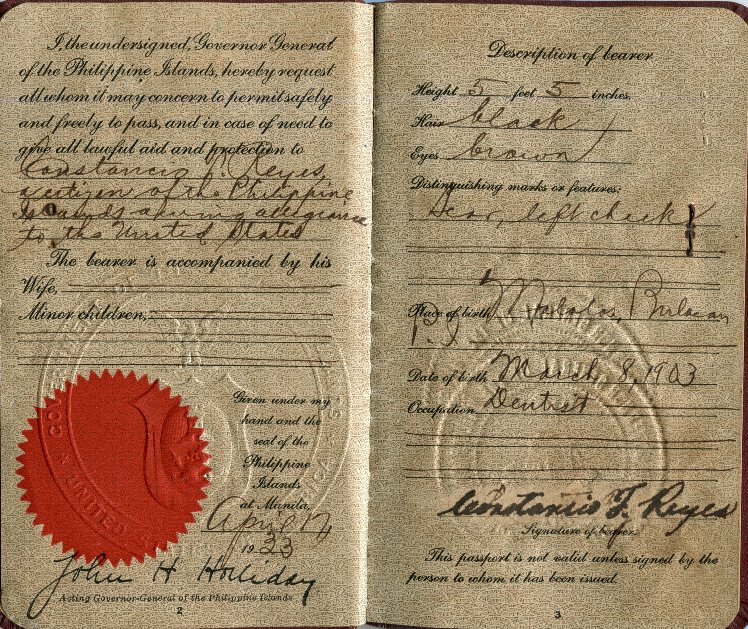 I, the undersigned, Governor General
of the Philippine Islands, hereby request
all whom it may concern to permit safely
and freely to pass, and in case of need to
give all lawful aid and protection to
Constancio F. Reyes,
a citizen of the Philippine
Islands owing allegiance
to the United States
The bearer is accompanied by his
Wife,
Minor children,
Given under my
hand and the
seal of the
Philippine
Islands
at Manila,
April 17,
1923
John H Holliday
Acting Governor-General of the Philippine Islands
2
Description of bearer
Height 5 feet 5 inches.
Hair black
Eyes brown
Distinguishing marks or features:
Scar, left cheek
Place of birth Malolos, Bulacan
P. I.
Date of birth March 8, 1903
Occupation Dentist
Constancio F. Reyes
Signature of bearer.
This passport is not valid unless signed by the
person to whom it has been issued.
3